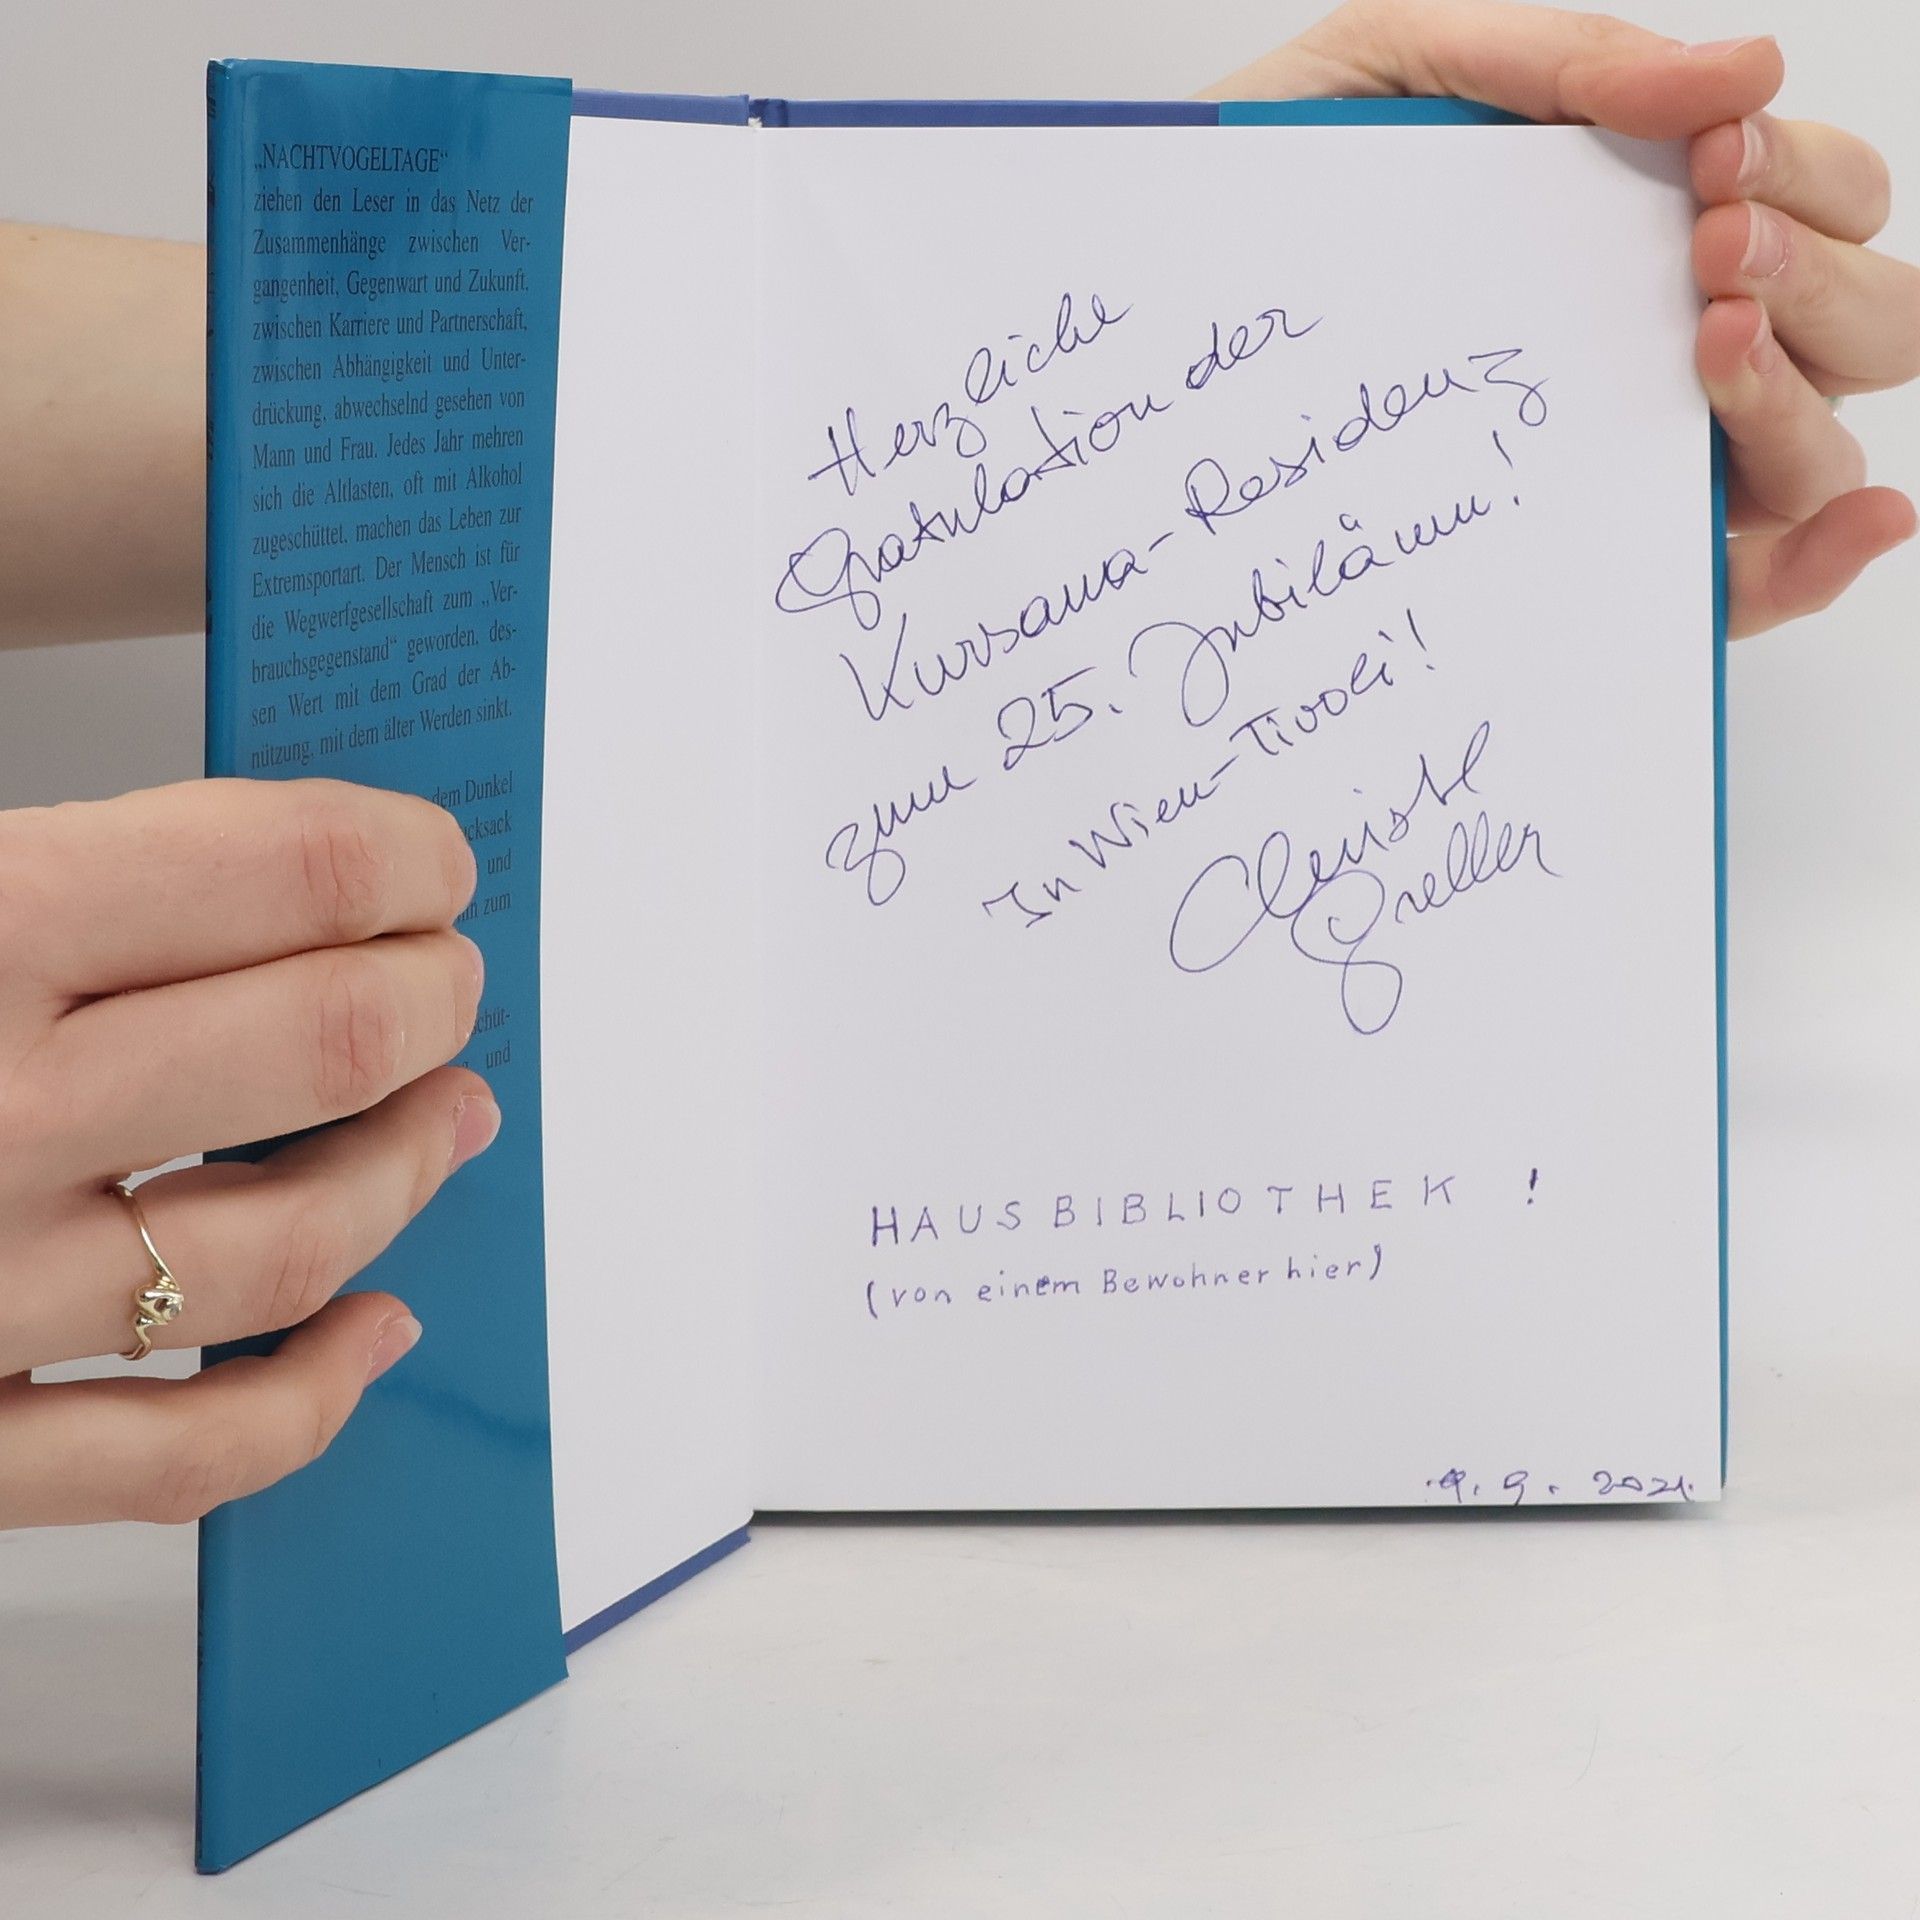 „NACHTVOGELTAGE“
ziehen den Leser in das Netz der
Zusammenhänge zwischen Ver-
gangenheit, Gegenwart und Zukunft,
zwischen Karriere und Partnerschaft,
zwischen Abhängigkeit und Unter-
drückung, abwechselnd gesehen von
Mann und Frau. Jedes Jahr mehren
sich die Altlasten, oft mit Alkohol
zugeschüttet, machen das Leben zur
Extremsportart. Der Mensch ist für
die Wegwerfgesellschaft zum „Ver-
brauchsgegenstand“ geworden, des-
sen Wert mit dem Grad der Ab-
nützung, mit dem älter Werden sinkt.
dem Dunkel
und
zum
und
Herzliche
Gratulation der
Kursana-Residenz
zum 25. Jubiläum!
In Wien-Tivoli!
Christl
Greller
HAUSBIBLIOTHEK !
(von einem Bewohner hier)
9. 2021.